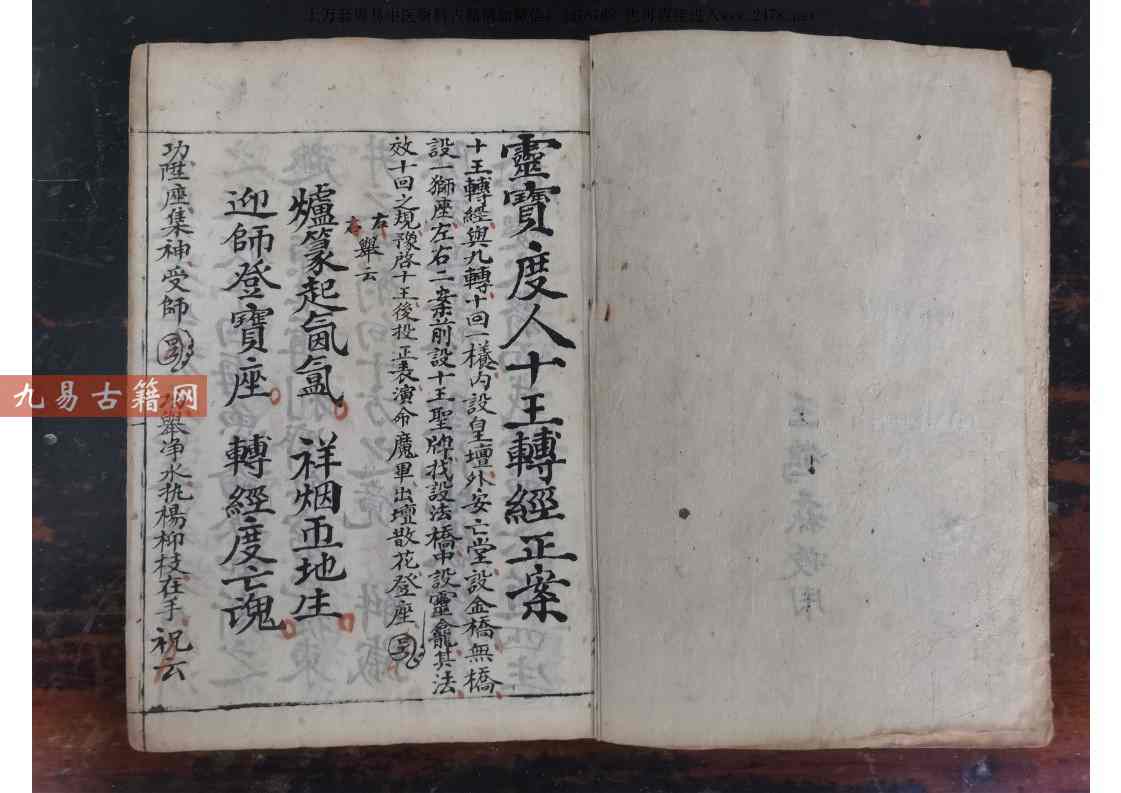 靈寶度人十王轉經正案
十王轉經與九轉十回一樣內設皇壇外安亡堂設金橋無橋
設一獅座左右二案前設十王聖牌找設法橋中設靈龕其法
效十回之規豫啓十王後投正表演命魔畢出壇散花登座
左右舉云
爐篆起氤氳 祥烟匝地生
迎師登寶座 轉經度亡魂
功陞座集神受師
舉净水执楊柳枝在手 祝云
九易古籍网